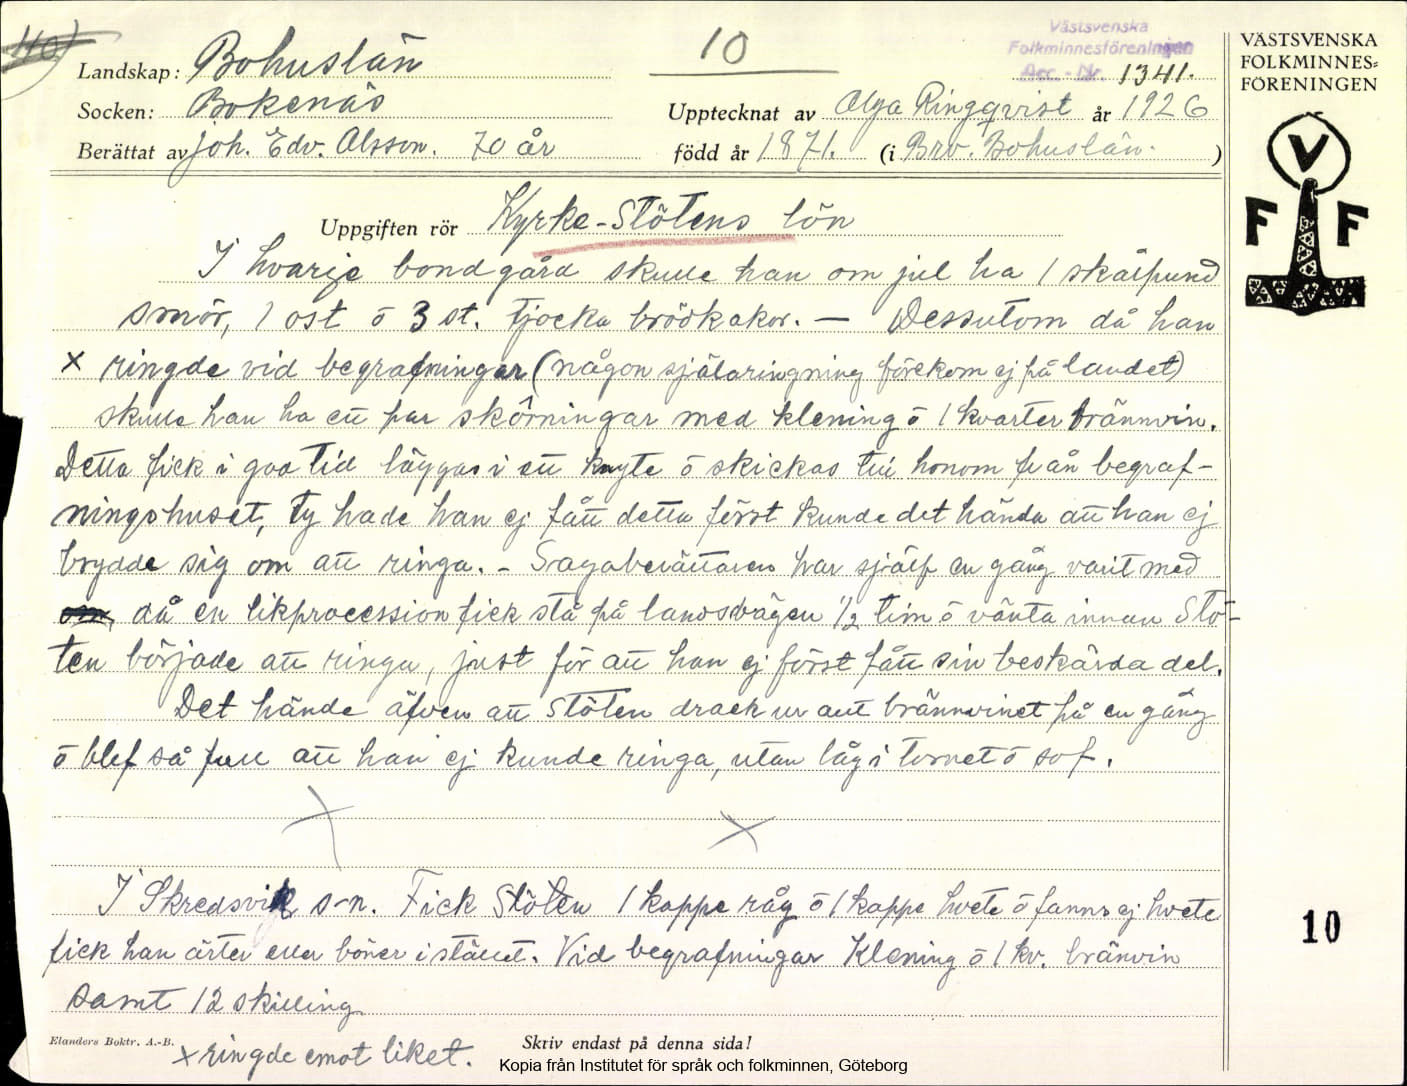 40)
Landskap: Bohuslän
10
Västsvenska
Folkminnesföreningen
Acc.-Nr. 1341.
VÄSTSVENSKA
FOLKMINNES-
FÖRENINGEN
Socken: Bokenäs
Upptecknat av Olga Ringqvist år 1926
Berättat av Joh. Edv. Olsson. 70 år
född år 1871. (i Bro. Bohuslän. )
V
F F
Uppgiften rör Kyrke-Stötens lön
I hvarje bondgård skulle han om jul ha 1 skålpund
smör, 1 ost ō 3 st. tjocka brödkakor. — Dessutom då han
x ringde vid begrafningar (någon själaringning förekom ej på landet)
skulle han ha ett par skörningar med klening ō 1 kvarter brännvin.
Detta fick i goa tid läggas i ett knyte ō skickas till honom från begraf-
ningshuset, ty hade han ej fått detta först kunde det hända att han ej
brydde sig om att ringa. - Sagoberättaren har själf en gång varit med
då en likprocession fick stå på landsvägen 1/2 tim ō vänta innan Stö-
ten började att ringa, just för att han ej först fått sin beskärda del.
Det hände äfven att Stöten drack ur allt brännvinet på en gång
ō blef så full att han ej kunde ringa, utan låg i tornet ō sof.
I Skredsvik s-n. Fick Stöten 1 kappe råg ō 1 kappe hvete ō fanns ej hvete
fick han ärter eller böner i stället. Vid begrafningar Klening ō 1 kv. bränvin
samt 12 skilling
10
Elanders Boktr. A.-B.
Skriv endast på denna sida!
x ringde emot liket.
Kopia från Institutet för språk och folkminnen, Göteborg